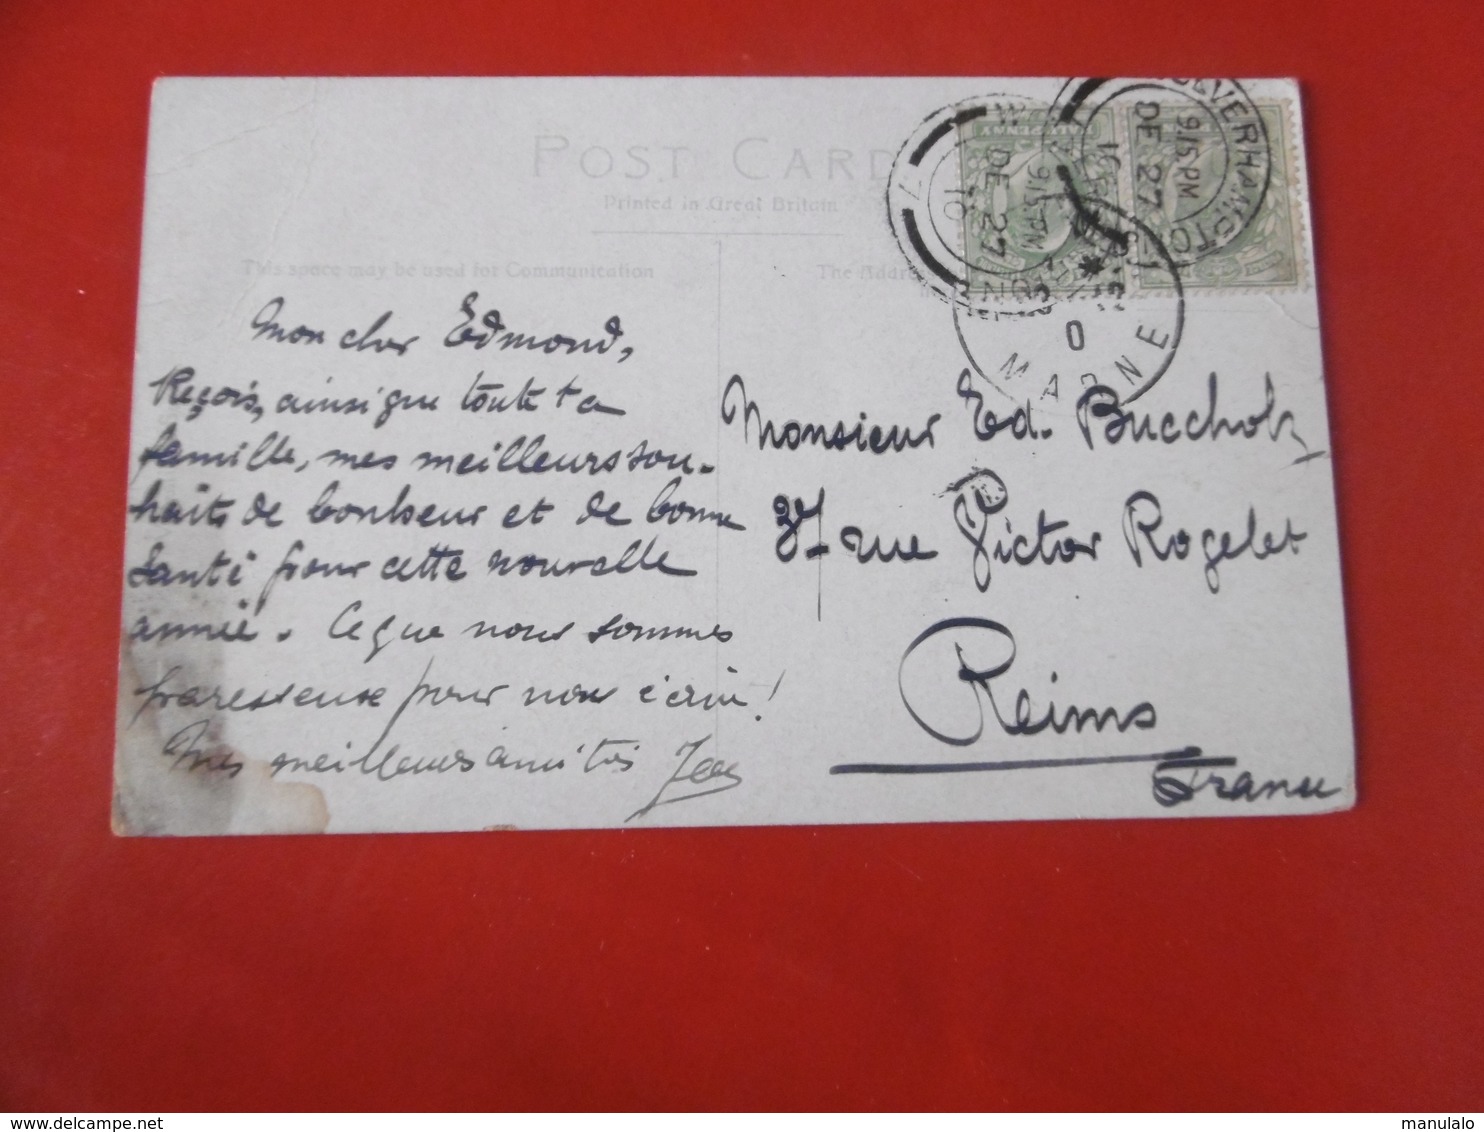 POST CARD
Printed in Great Britain
This space may be used for Communication
The Address
Mon cher Edmond,
Reçois, ainsi que toute ta
famille, mes meilleurs sou-
haits de bonheur et de bonne
santé pour cette nouvelle
année. Ce que nous sommes
paresseuse pour nous écrire!
Mes meilleures amitiés
Monsieur Ed. Buccholz
37 rue Victor Rogelet
Reims
France
HALFPENNY
WOLVERHAMPTON
9.15 PM
DE 27
10
9.15 PM
DE 27
10
MARNE
www.delcampe.net
manulalo